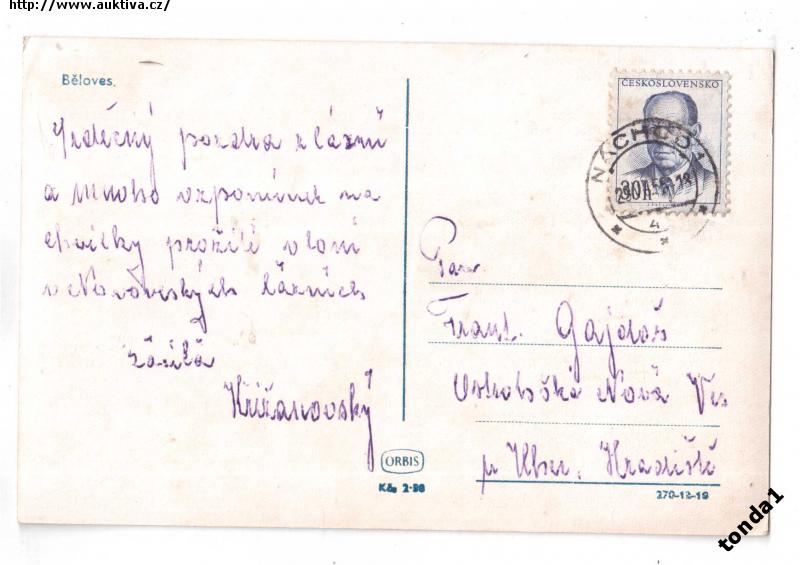 http://www.auktiva.cz/
Běloves.
Srdečný pozdra z lázní
a mnoho vzpomínek na
chvilky prožité vloni
v Novoveských lázních
Křižanovský
ČESKOSLOVENSKO
NÁCHOD 1
4
Pan
Frant. Gajdoš
Ostrožská Nová Ves
p Uher. Hradiště
ORBIS
Kčs 2·98
270-12-19
tonda1